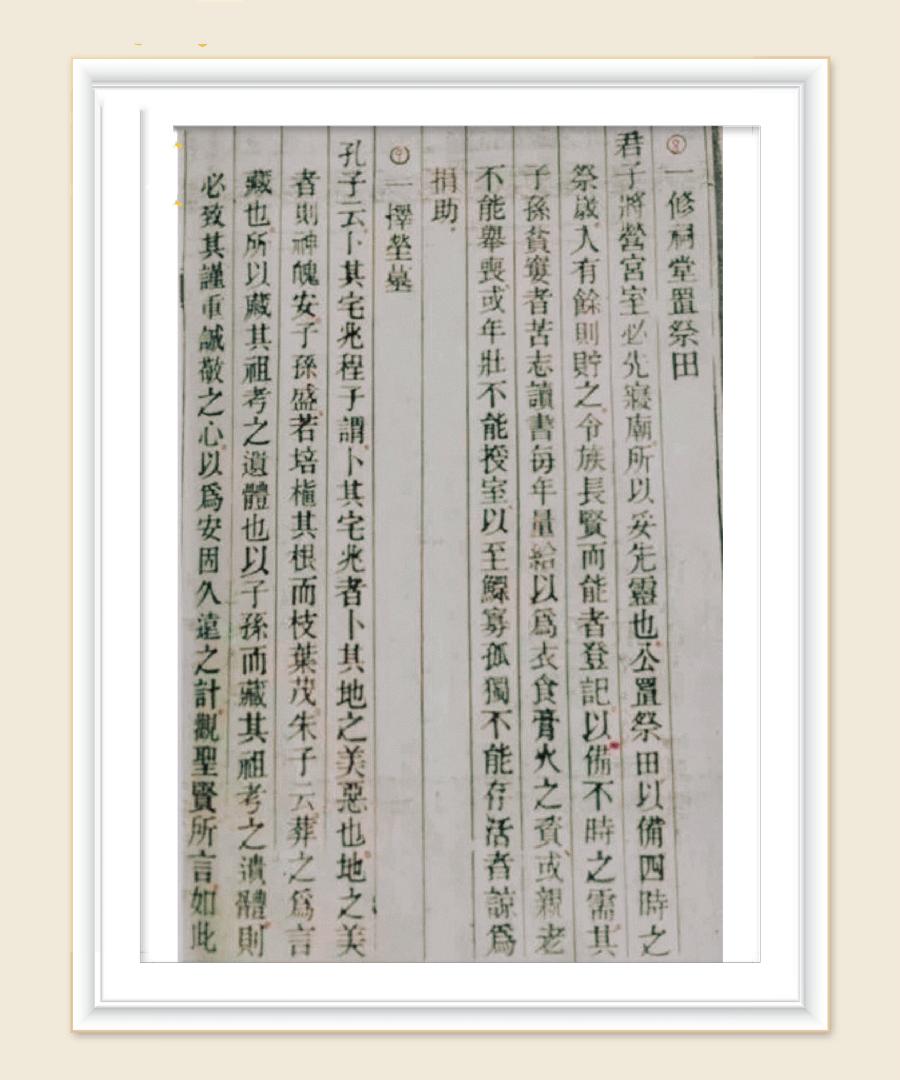 ⑧
一修祠堂置祭田
君子將營宮室必先寢廟所以妥先靈也公置祭田以備四時之
祭歲入有餘則貯之令族長賢而能者登記以備不時之需其
子孫貧窶者苦志讀書每年量給以爲衣食膏火之資或親老
不能舉喪或年壯不能授室以至鰥寡孤獨不能存活者諒爲
捐助
⑨
一擇塋墓
孔子云卜其宅兆程子謂卜其宅兆者卜其地之美惡也地之美
者則神魄安子孫盛若培植其根而枝葉茂朱子云葬之爲言
藏也所以藏其祖考之遺體也以子孫而藏其祖考之遺體則
必致其謹重誠敬之心以爲安固久遠之計觀聖賢所言如此